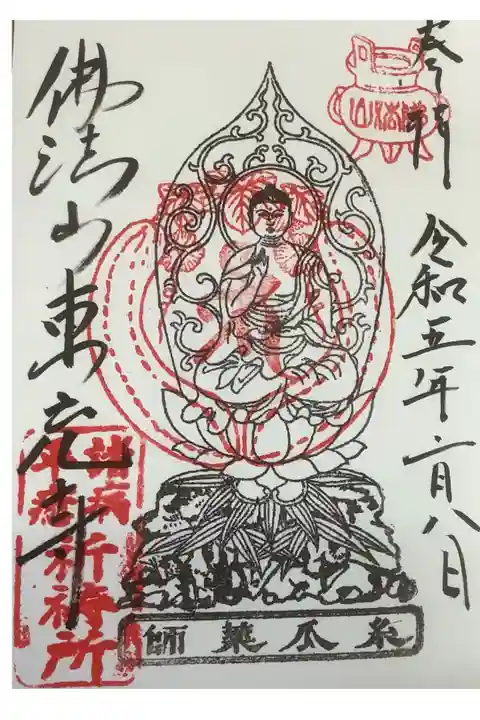 奉拝
令和五年二月八日
佛法山東光寺
糸瓜薬師
祈祷所